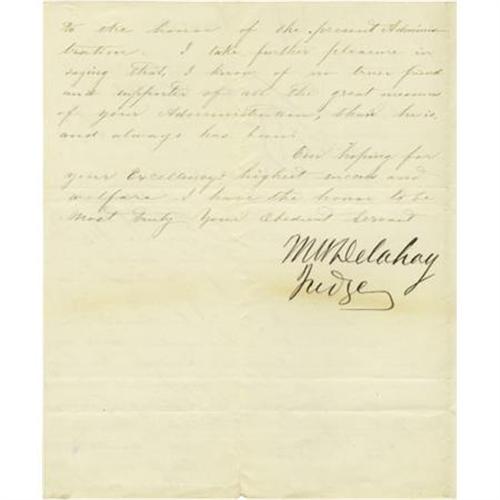 to the honor of the present Adminis-
tration. I take further pleasure in
saying that, I know of no truer friend
and supporter of all the great measures
of your Administration, than he is,
and always has been.
Ever hoping for
your Excellency's highest success and
welfare I have the honor to be
Most truly Your Obedient Servant
M W Delahay
Judge